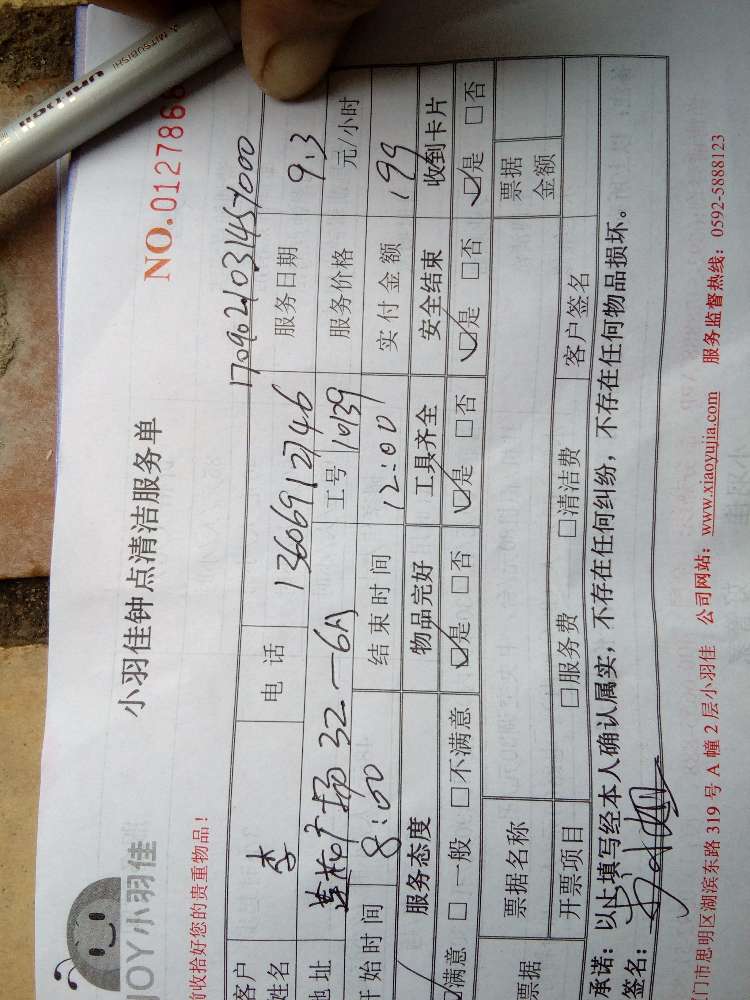 MITSUBISHI
uni
JOY小羽佳
小羽佳钟点清洁服务单
NO.012786
前收拾好您的贵重物品!
1709021031454000
客户姓名 李 电话 13606912746 服务日期 9.3
地址 32-6A 工号 10139 服务价格 元/小时
开始时间 8:00 结束时间 12:00 实付金额 199
服务态度 物品完好 工具齐全 安全结束 收到卡片
满意 □一般 □不满意 ☑是 □否 ☑是 □否 ☑是 □否 ☑是 □否
票据 票据名称 票据金额
开票项目 □服务费 □清洁费 客户签名
承诺:以上填写经本人确认属实,不存在任何纠纷,不存在任何物品损坏。
签名:
门市思明区湖滨东路 319 号 A 幢 2 层小羽佳 公司网站:www.xiaoyujia.com 服务监督热线:0592-5888123